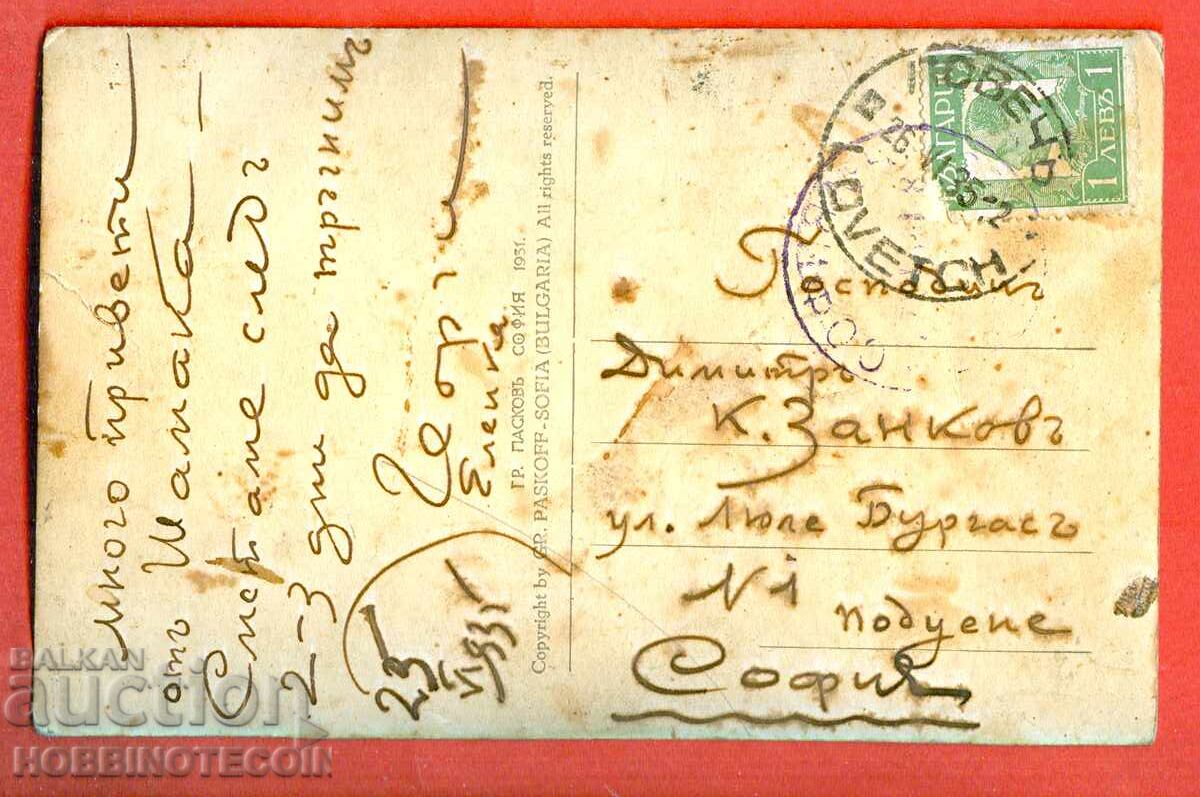 Много привети
отъ Шамака –
Смѣтаме следъ
2–3 дни да тръгнимъ
Еленка
23
VI 935
ГР. ПАСКОВЪ СОФИЯ 1931.
Copyright by GR. PASKOFF - SOFIA (BULGARIA) All rights reserved.
БЪЛГАРИЯ
1 ЛЕВЪ 1
ОВЕЧЪ
OVETCH
Господинъ
Димитръ
К. Занковъ
ул. Люле Бургасъ
N 1
Подуене
София
BALKAN
auction
HOBBINOTECOIN